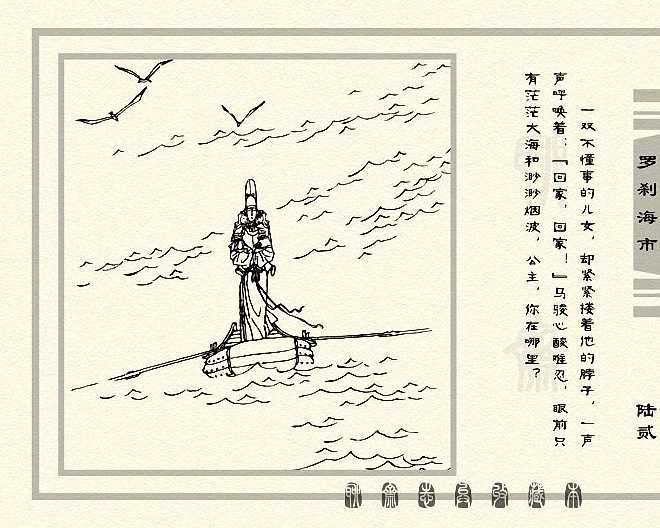 罗刹海市
一双不懂事的儿女，却紧紧搂着他的脖子，一声
声呼唤着：『回家，回家！』马骏心酸难忍，眼前只
有茫茫大海和渺渺烟波，公主，你在哪里？
陆贰
聊斋志异收藏本